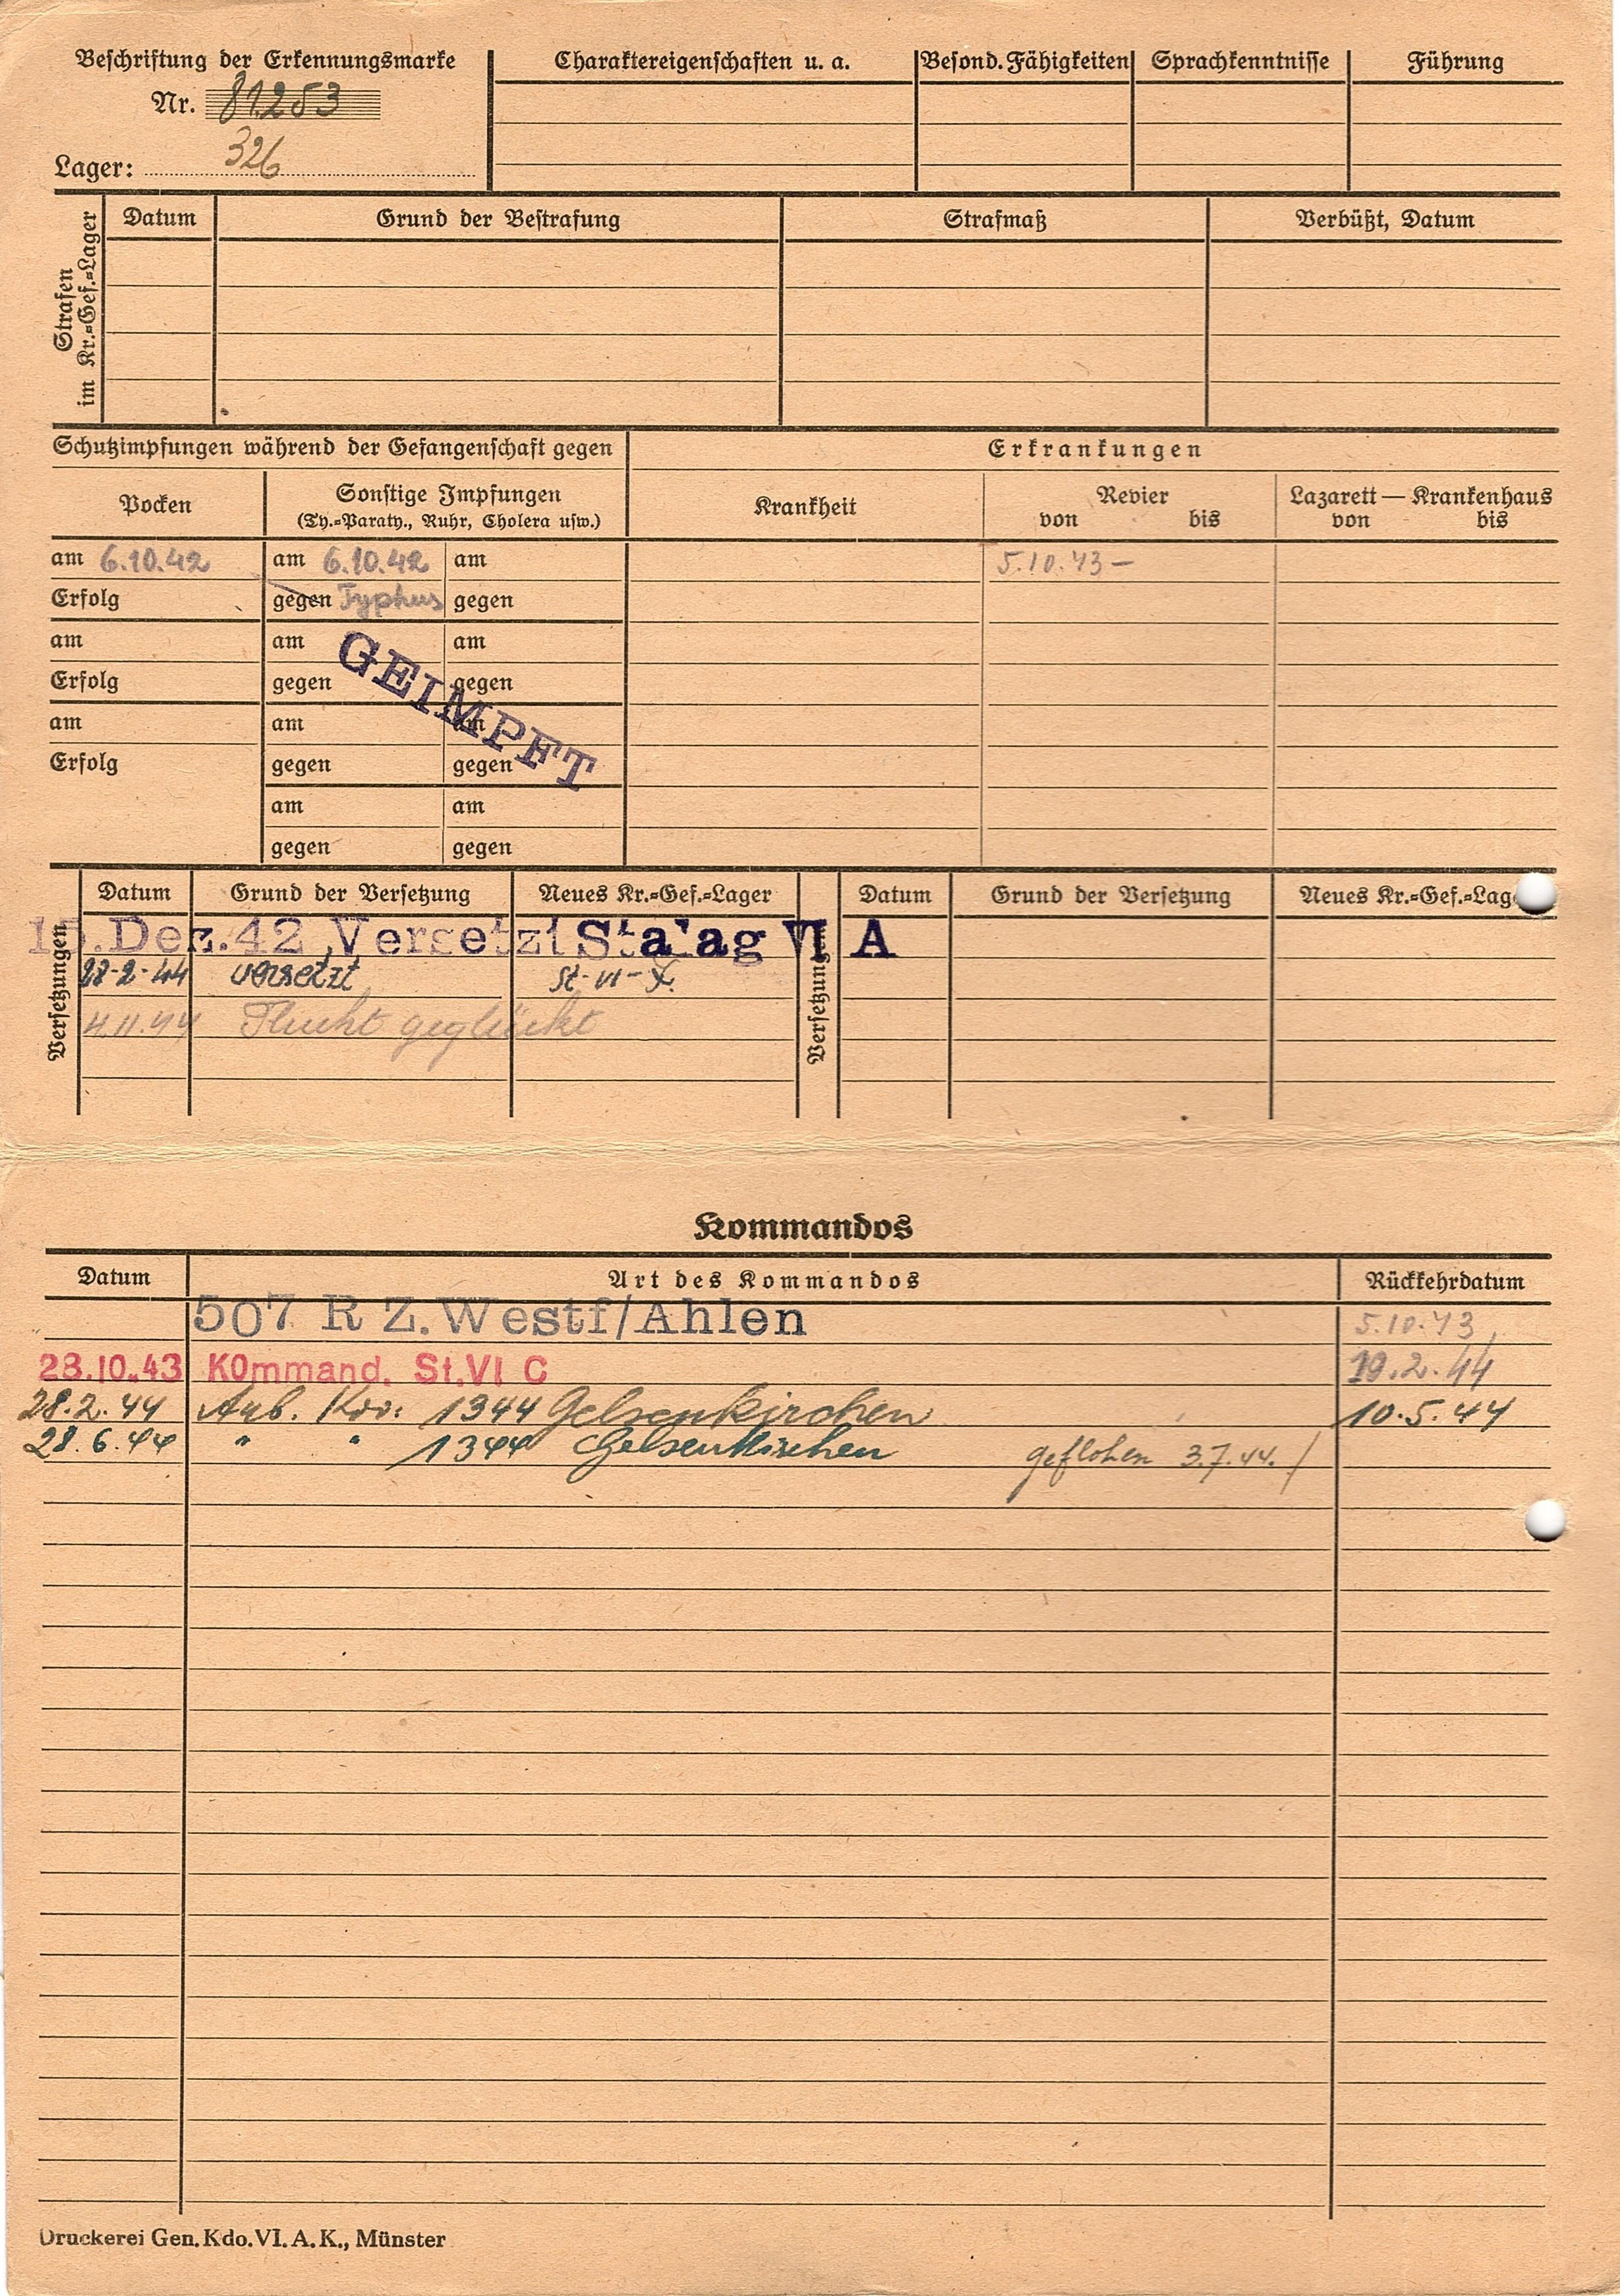 Beschriftung der Erkennungsmarke
Nr. 81253
Lager: 326
Charaktereigenschaften u. a.
Besond. Fähigkeiten
Sprachkenntnisse
Führung
Strafen im Kr.-Gef.-Lager
Datum Grund der Bestrafung Strafmaß Verbüßt, Datum
Schutzimpfungen während der Gefangenschaft gegen Erkrankungen
Pocken
Sonstige Impfungen
(Ty.-Paraty., Ruhr, Cholera usw.)
Krankheit
Revier
von bis
Lazarett — Krankenhaus
von bis
am 6.10.42 am 6.10.42 am 5.10.43 –
Erfolg gegen Typhus gegen
am am am
Erfolg gegen gegen
am am am
Erfolg gegen gegen
am am
gegen gegen
GEIMPFT
Versetzungen
Datum Grund der Versetzung Neues Kr.-Gef.-Lager
Versetzungen
Datum Grund der Versetzung Neues Kr.-Gef.-Lag
.Dez.42 Versetzt Stalag VI A
28-2-44 versetzt St-VI-
4.11.44 Flucht geglückt
Kommandos
Datum Art des Kommandos Rückkehrdatum
507 R Z. Westf/Ahlen 5.10.43
28.10.43 KOmmand. St.VI C 19.2.44
28.2.44 Arb. Kdo: 1344 Gelsenkirchen 10.5.44
28.6.44 " " 1344 Gelsenkirchen geflohen 3.7.44. /
Druckerei Gen. Kdo. VI. A. K., Münster